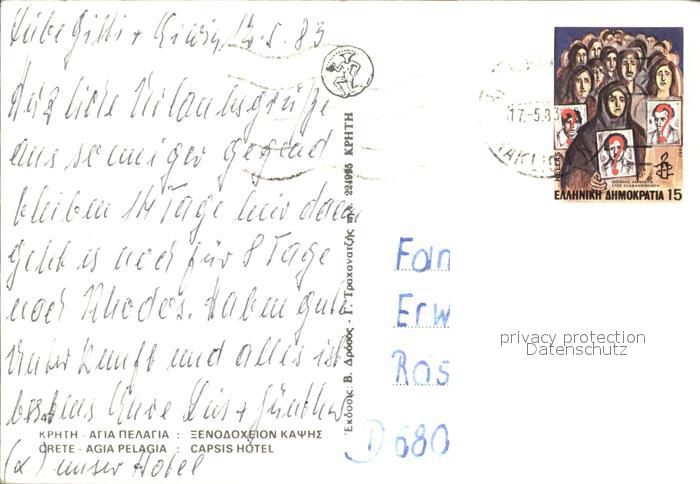 Liebe Gitti + Erwin, 12.5.83
Herzliche Urlaubsgrüße
aus sonniger Gegend
bleiben 14 Tage hier dann
geht es noch für 8 Tage
nach Rhodos. Haben gute
Unterkunft und alles ist
bestens Eure + Günther
ΚΡΗΤΗ - ΑΓΙΑ ΠΕΛΑΓΙΑ : ΞΕΝΟΔΟΧΕΙΟΝ ΚΑΨΗΣ
CRETE - AGIA PELAGIA : CAPSIS HOTEL
(x) unser Hotel
Έκδοσις: Β. Δρόσος - Γ. Τραχανατζής τηλ. 224995 ΚΡΗΤΗ
17.-5.83
ΕΛΛΗΝΙΚΗ ΔΗΜΟΚΡΑΤΙΑ 15
Fam
Erw
Ros
D 680
privacy protection
Datenschutz